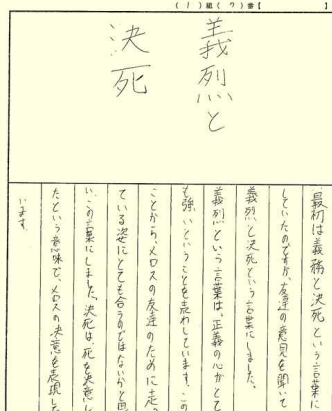 (1)組(7)番【 】
義烈と
決死
最初は義務と決死という言葉に
していたのですが、友達の意見を聞いて
義烈と決死という言葉にしました。
義烈という言葉は、正義の心がとて
も強いということを表わしています。この
ことから、メロスの友達のために走っ
ている姿にとても合うのではないかと思
い、この言葉にしました。決死は、死を決意し
たという意味で、メロスの決意を表現して
います。